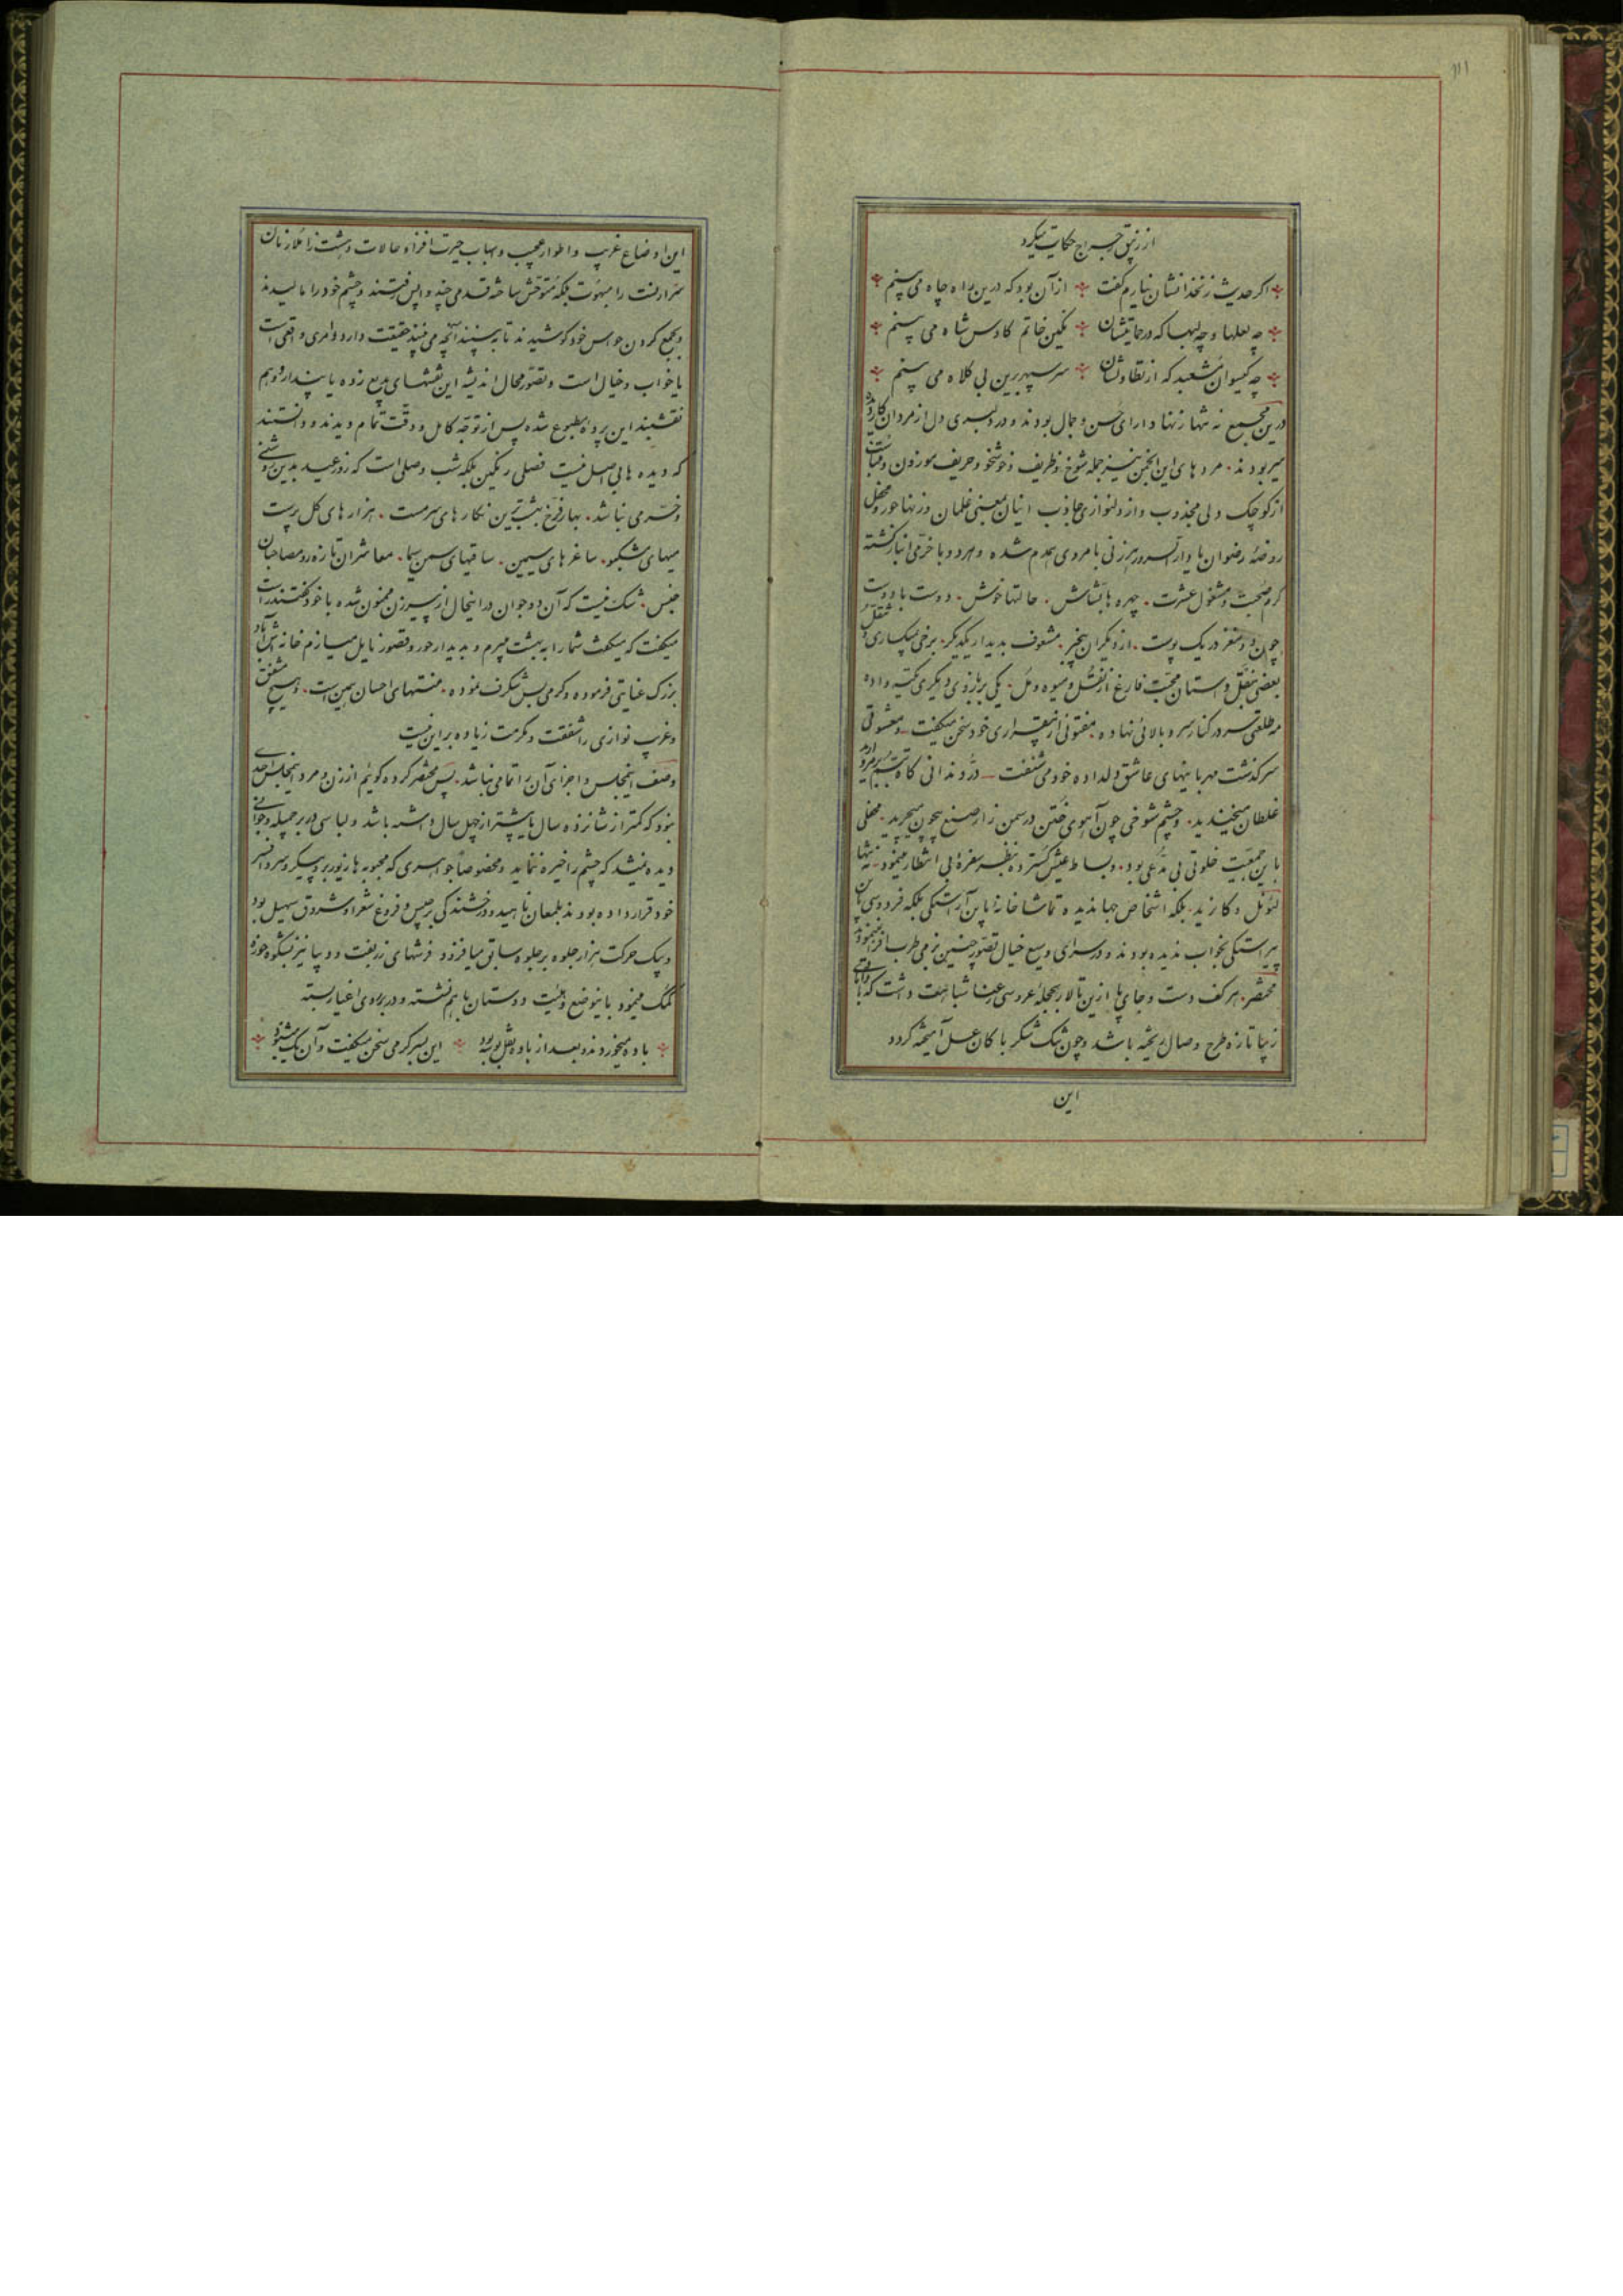 از زیبق رجراج حکایت میکرد
اگر حدیث زنخدانشان نیارم گفت از آن بود که درین راه چاه می بینم
چه لعلها و چه لبها که در حمایتشان نگین خاتم کاوس شاه می بینم
چه گیسوان مشعبد که از تطاولشان سر سپهر برین بی کلاه می بینم
درین مجمع نه تنها زنها دارای حسن و جمال بودند و در دلبری دل از مردان کار
میربودند مردهای این انجمن نیز جمله شوخ و ظریف و خوشخو و حریف موزون
از کوچک دلی مجذوب و از دلنوازی جاذب اینان بمعنی غلمان و زنها حور و محفل
روضه رضوان با دار السرور هر زنی با مردی همدم شده و هر دو با خرمی انباز گشته
گرم صحبت و مشغول عشرت چهره ها بشاش حالتها خوش دوست با دوست
چون دو مغز در یک پوست از دیگران بیخبر مشعوف بدیدار یکدیگر برخی بمیگساری
بعضی بنقل داستان محبت فارغ از نقل و میوه و مل یکی بر بازوی دیگری تکیه داده
مه طلعتی سر در کنار سرو بالائی نهاده مفتونی از بیقراری خود سخن میگفت و معشوقی
سرگذشت مهربانیهای عاشق دلداده خود می شنفت در دندانی گاه تبسم
غلطان میخندید و چشم شوخی چون آهوی ختن در سمن زار صنع بیچون میچرید محفلی
باین جمعیت خلوتی بی مدعی بود و بساط عیش گسترده بنظر سفره بی انتظار مینمود نه تنها
لئونل و کازید بلکه اشخاص جهاندیده تماشاخانه باین آراستگی بلکه فردوسی باین
پیراستگی بخواب ندیده بودند و در سرای وسیع خیال تصور چنین بزمی طرب افزا ننموده
مختصر هر کف دست و جای پا ازین تالار بحجله عروسی رعنا شباهت داشت که با
زیبا تازه طرح وصال ریخته باشد و چون تنگ شکر با کان عسل آمیخته گردد
این
این اوضاع غریب و اطوار عجیب و اسباب حیرت افزا و حالات دهشت زا ملازمان
سرارلنت را مبهوت بلکه متوحش ساخته قدمی چند واپس رفتند و چشم خود را مالیدند
و بجمع کردن حواس خود کوشیدند تا به بینند آنچه می بینند حقیقت دارد و امری واقعی است
یا خواب و خیال است و تصور محال اندیشه این نقشهای بدیع زده یا پندار و وهم
نقشبند این پرده مطبوع شده پس از توجه کامل و دقت تمام دیدند و دانستند
که دیده ها بی اصل نیست فصلی رنگین بلکه شب وصلی است که روز عید بدین روشنی
و خرمی نباشد بهار فرخ بشیرین نگارهای سرمست هزارهای گل پرست
میهای مشکبو ساغرهای سیمین ساقیهای سمن سیما معاشران تازه رو مصاحبان
همنس شک نیست که آن دو جوان در اینحال از پیرزن ممنون شده با خود گفتند راست
میگفت که میگفت شما را به بهشت میبرم و بدیدار حور و قصور نایل میسازم خانه اش آباد
بزرگ عنایتی فرموده و کرمی بس شگرف نموده منتهای احسان همین است و هیچ مشفق
و غریب نوازی را شفقت و مکرمت زیاده بر این نیست
وصف اینمجلس و اجزای آن را تمامی نباشد پس مختصر کرده گوئیم از زن و مرد اینمجلس احدی
نبود که کمتر از شانزده سال یا بیشتر از چهل سال داشته باشد و لباسی در بر جمیله و جوانی
دیده نمیشد که چشم را خیره ننماید و مخصوصا جواهری که محبوبه ها زیور بر و پیکر و سر و افسر
خود قرار داده بودند بلمعان ناهید و درخشندگی برجیس و فروغ شعرا و شروق سهیل بود
و بیک حرکت هزار جلوه بر جلوه سابق میافزود و فرشهای زربفت و دیبا نیز بشکوه حوزه
کمک مینمود باینوضع و هیئت دوستان با هم نشسته و در بروی اغیار بسته
باده میخوردند و بعد از باده نقل بوسه بود این بسر گرمی سخن میگفت و آن یک می شنود